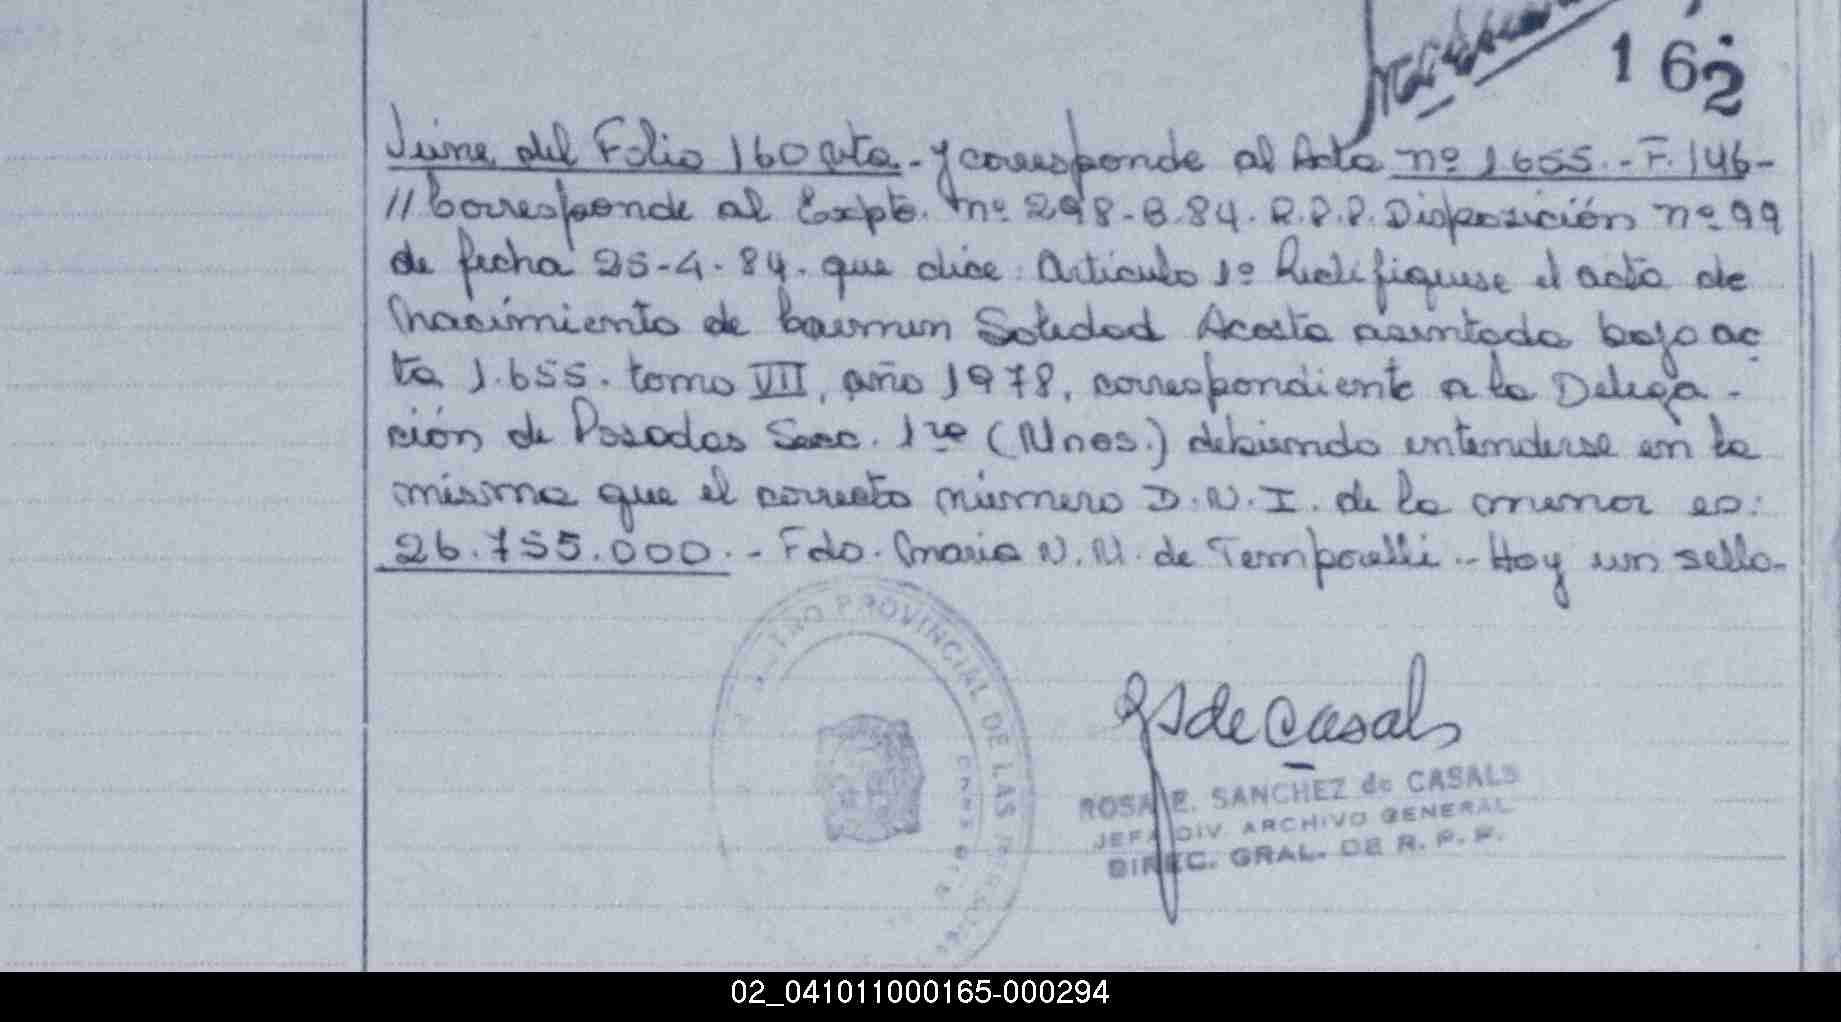 162
Viene del Folio 160 vta. - y corresponde al Acta nº 1655.- F. 146-
// Corresponde al Expte. nº 298-B-84. R.P.P. Disposición nº 99
de fecha 25-4-84. que dice: Articulo 1º Rectifiquese el acta de
nacimiento de Carmen Soledad Acosta asentada bajo ac
ta 1.655. tomo VII, año 1978, correspondiente a la Delega -
ción de Posadas Secc. 1ra (Mnes.) debiendo entenderse en la
misma que el correcto número D.N.I. de la menor es:
26.755.000.- Fdo. Maria N. M. de Temporelli.- Hay un sello-
PROVINCIAL DE LAS
RS de Casals
ROSA E. SANCHEZ de CASALS
JEFA DIV. ARCHIVO GENERAL
DIREC. GRAL. DE R. P. P.
02_041011000165-000294